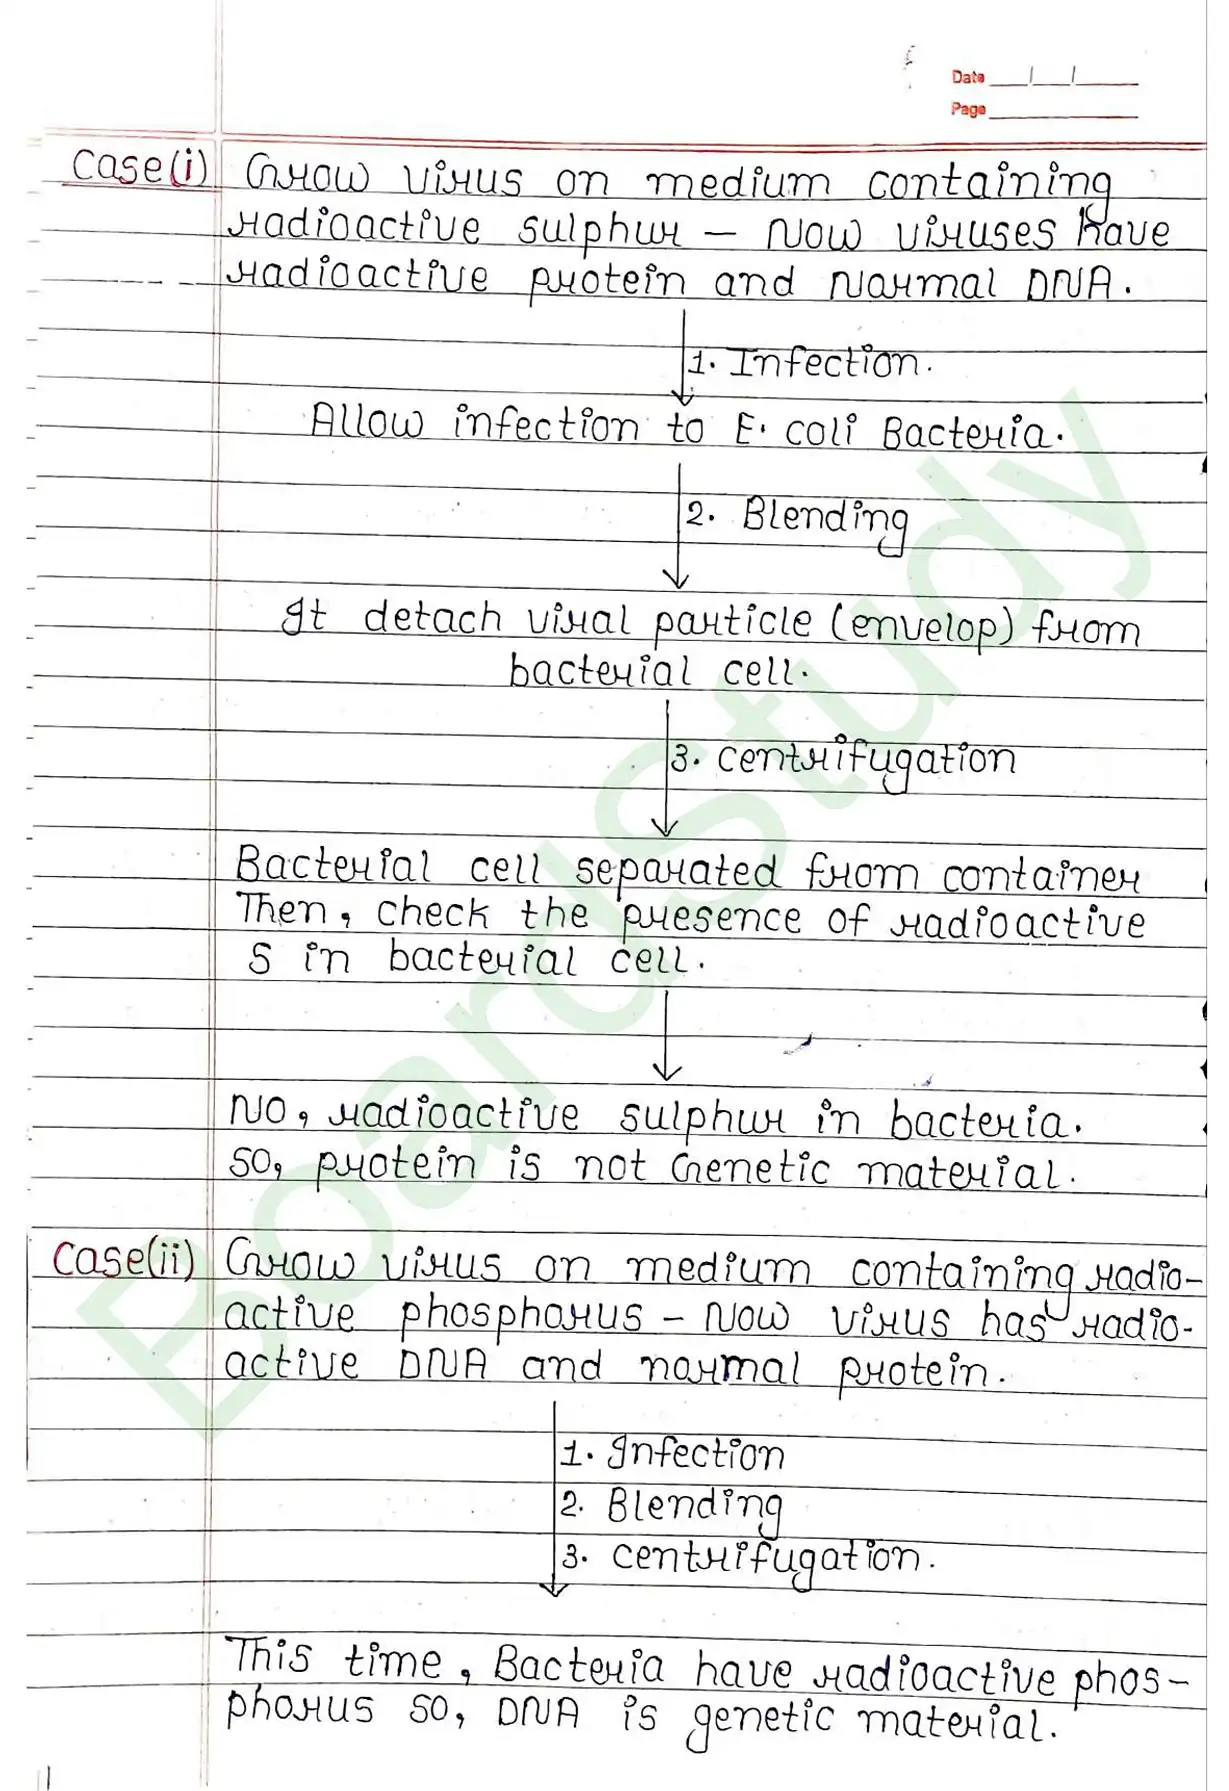 Date
Page
Case(i) Grow virus on medium containing
radioactive sulphur - Now viruses have
radioactive protein and Normal DNA.
1. Infection.
Allow infection to E. coli Bacteria.
2. Blending
It detach viral particle (envelop) from
bacterial cell.
3. Centrifugation
Bacterial cell separated from container
Then, check the presence of radioactive
S in bacterial cell.
NO, radioactive sulphur in bacteria.
SO, protein is not Genetic material.
Case(ii) Grow virus on medium containing radio-
active phosphorus - Now virus has radio-
active DNA and normal protein.
1. Infection
2. Blending
3. Centrifugation.
This time, Bacteria have radioactive phos-
phorus so, DNA is genetic material.
BoardStudy